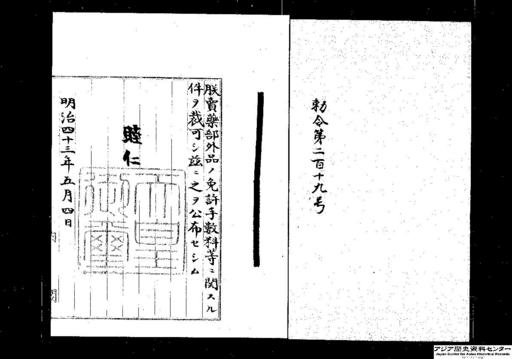 勅令第二百十九号
朕賣藥部外品ノ免許手數料等ニ関スル
件ヲ裁可シ茲ニ之ヲ公布セシム
睦仁
天皇御璽
明治四十三年五月四日
内
閣
アジア歴史資料センター
Japan Center for Asian Historical Records